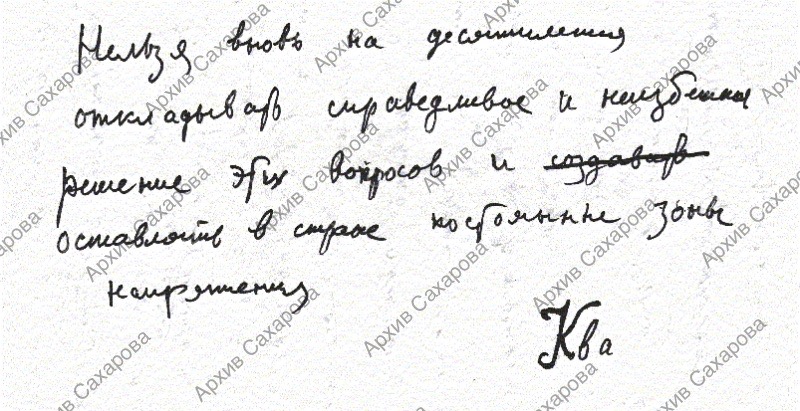 Нельзя вновь на десятилетия
откладывать справедливое и неизбежное
решение этих вопросов и создавать
оставлять в стране постоянные зоны
напряжения
Ква
Архив Сахарова